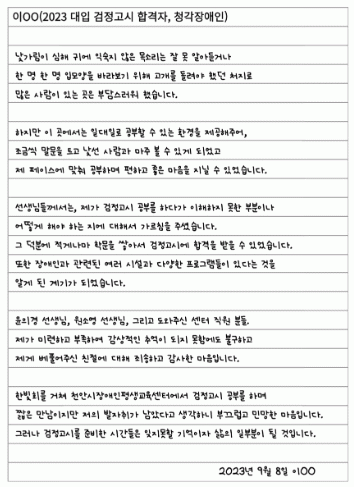 이OO(2023 대입 검정고시 합격자, 청각장애인)
낯가림이 심해 귀에 익숙지 않은 목소리는 잘 못 알아듣거나
한 명 한 명 입모양을 바라보기 위해 고개를 돌려야 했던 처지로
많은 사람이 있는 곳은 부담스러워 했습니다.
하지만 이 곳에서는 일대일로 공부할 수 있는 환경을 제공해주어,
조금씩 말문을 트고 낯선 사람과 마주 볼 수 있게 되었고
제 페이스에 맞춰 공부하며 편하고 좋은 마음을 지닐 수 있었습니다.
선생님들께서는, 제가 검정고시 공부를 하다가 이해하지 못한 부분이나
어떻게 해야 하는 지에 대해서 가르침을 주셨습니다.
그 덕분에 적게나마 학문을 쌓아서 검정고시에 합격을 받을 수 있었습니다.
또한 장애인과 관련된 여러 시설과 다양한 프로그램들이 있다는 것을
알게 된 계기가 되었습니다.
윤의경 선생님, 원소영 선생님, 그리고 도와주신 센터 직원 분들.
제가 미련하고 부족하여 감상적인 추억이 되지 못함에도 불구하고
제게 베풀어주신 친절에 대해 죄송하고 감사한 마음입니다.
한빛회를 거쳐 천안시장애인평생교육센터에서 검정고시 공부를 하며
짧은 만남이지만 저의 발자취가 남았다고 생각하니 부끄럽고 민망한 마음입니다.
그러나 검정고시를 준비한 시간들은 잊지못할 기억이자 삶의 일부분이 될 것입니다.
2023년 9월 8일 이OO